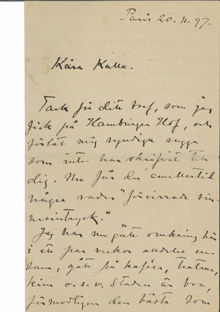 Paris 20.11.97.
Kära Kalle.
Tack för ditt bref, som jag
fick på Hamburger Hof, och
förlåt mig syndiga sugga
som inte har skrifvit till
dig. Nu får du emellertid
några rader "förvirrade sin-
nesintryck."
Jag har nu gått omkring här
i ett par veckor alldeles en-
sam, gått på kaféer, teatrar,
o. s. v. Staden är bra,
förmodligen den bästa som